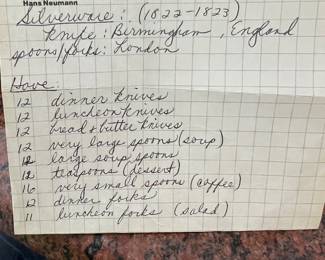 Hans Neumann
Silverware: (1822-1823)
knife: Birmingham, England
spoons/forks: London
Have:
12 dinner knives
12 luncheon knives
12 bread & butter knives
12 very large spoons (soup)
12 large soup spoons
12 teaspoons (dessert)
16 very small spoons (coffee)
12 dinner forks
11 luncheon forks (salad)